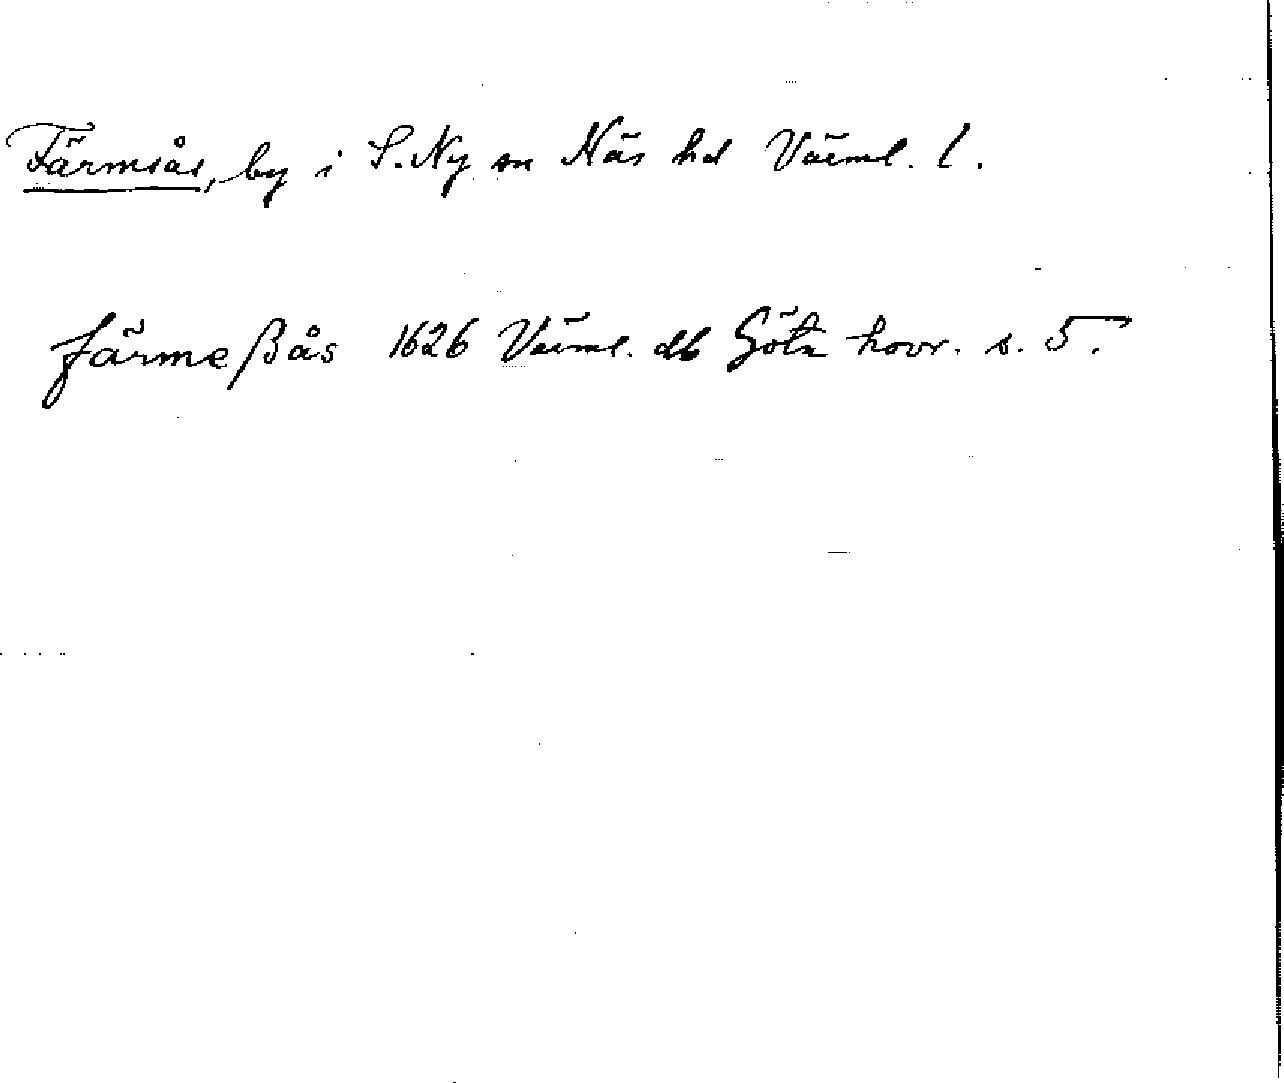 Färmsås, by i S. Ny sn Näs hd Värml. l.
färmeßås 1626 Värml. db Göta hovr. s. 5.